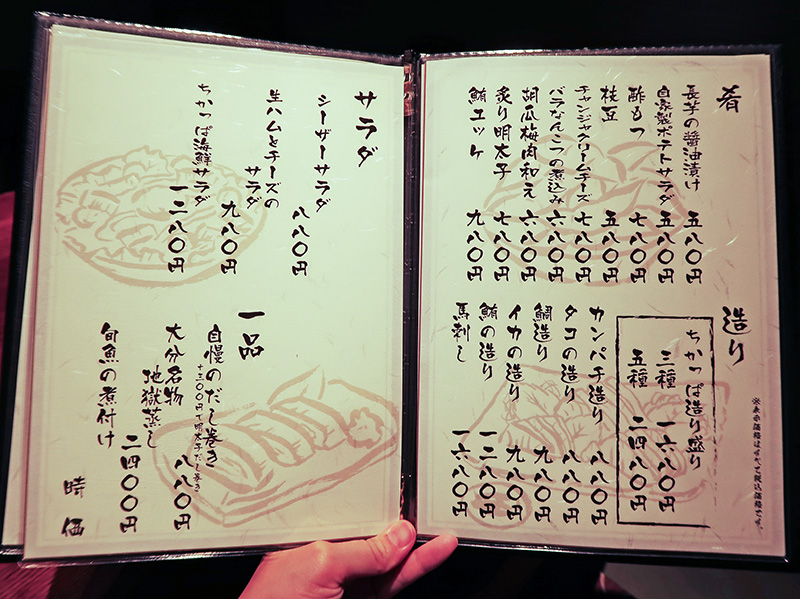 肴
長芋の醤油漬け 五八〇円
自家製ポテトサラダ 五八〇円
酢もつ 七八〇円
枝豆 五八〇円
チャンジャクリームチーズ 七八〇円
バラなんこつの煮込み 六八〇円
胡瓜梅肉和え 六八〇円
炙り明太子 七八〇円
鮪ユッケ 九八〇円
造り
※表示価格はすべて税込価格です。
ちかっぱ造り盛り
三種 一六八〇円
五種 二四八〇円
カンパチ造り 八八〇円
タコの造り 八八〇円
鯛造り 九八〇円
イカの造り 九八〇円
鮪の造り 一二八〇円
馬刺し 一六八〇円
サラダ
シーザーサラダ 八八〇円
生ハムとチーズの
サラダ 九八〇円
ちかっぱ海鮮サラダ 一二八〇円
一品
自慢のだし巻き 八八〇円
+三〇〇円で明太子だし巻き
大分名物
地獄蒸し 二四〇〇円
旬魚の煮付け 時価